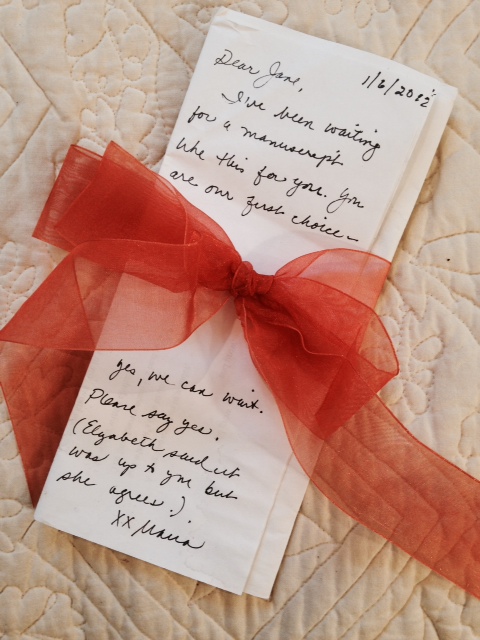 Dear Jane,
1/6/2012
I've been waiting
for a manuscript
like this for you. You
are our first choice–
yes, we can wait.
Please say yes.
(Elizabeth said it
was up to you but
she agrees!)
XX Maria